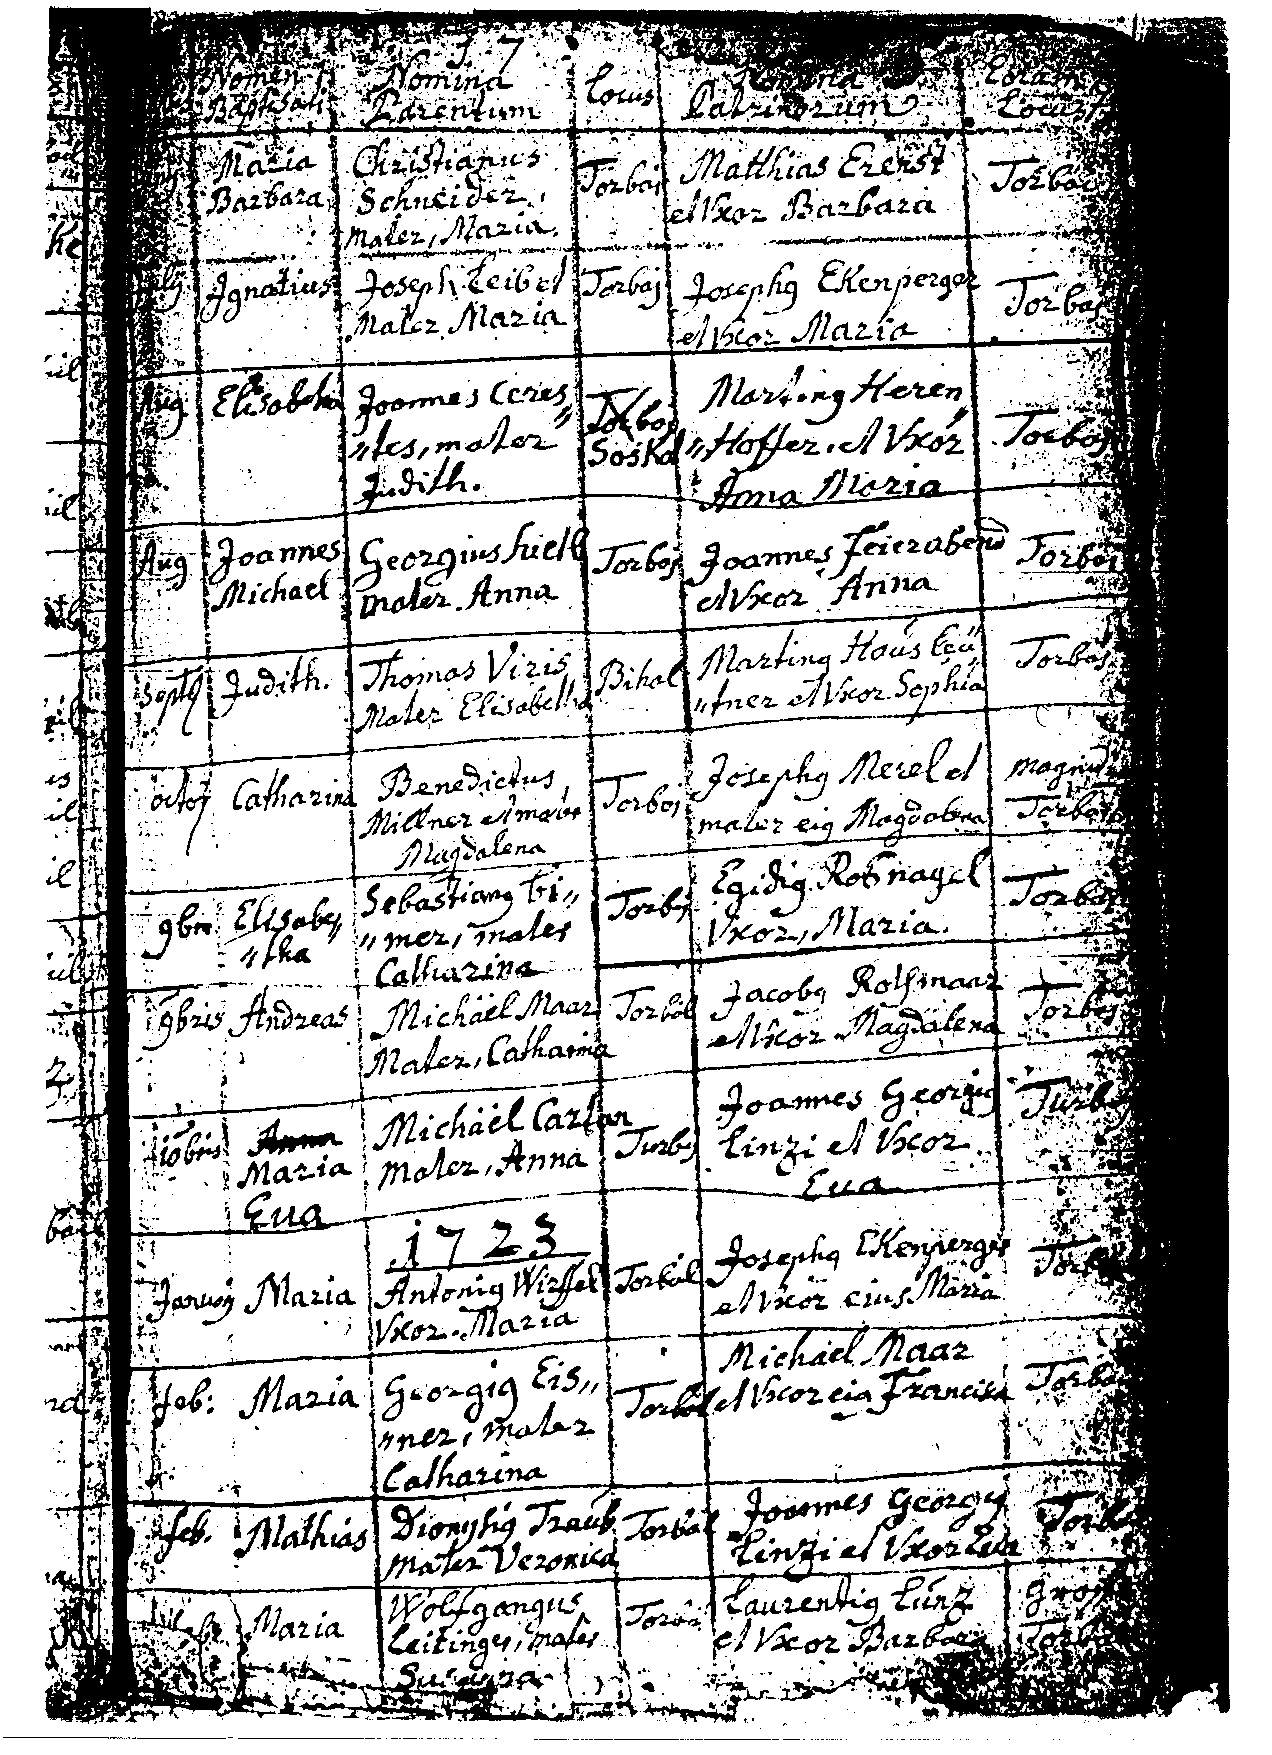 1 7
Nomen Baptisati
Nomina Parentum
Locus
Nomina Patrinorum
Eorum Locus
Maria
Barbara
Christianus
Schneider,
mater, Maria.
Torbaj
Matthias Ererst
et Vxor Barbara
Torbaj
July
Ignatius
Joseph Leibel
Mater Maria
Torbaj
Josephq Ekenperger
et Vxor Maria
Torbaj
Aug
Elisabetha
Joannes Ceres
"tes, mater"
Judith.
Torboj
Soskul
Marting Heren
"Hoffer. et Vxor
Anna Maria
Torboj
Aug
Joannes
Michael
Georgius
mater Anna
Torboj
Joannes Feierabend
et Vxor Anna
Torboj
Septq
Judith.
Thomas Viris
Mater Elisabetha
Bihal
Marting Haus Leü"
"tner et Vxor Sophia
Torbaj
octoj
Catharina
Benedictus
Millner et mater
Magdalena
Torboj
Josephq Merel et
mater eiq Magdalena
magnus
Torboj
9br
Elisabe"
"tha
Sebastianq Bi"
"mer, mater
Catharina
Torbj
Egidiq Rosnagel
Vxor, Maria.
Torboj
9bris
Andreas
Michäel Maar
Mater, Catharina
Torbal
Jacobq Rothmaar
et Vxor Magdalena
Torboj
10bris
Anna
Maria
Eua
Michäel Cartan
mater, Anna
Turbj
Joannes Georgiq
Linzi et Vxor
Eua
Turbj
1723
Januarij
Maria
Antoniq Wirffel
Vxor. Maria
Torbal
Josephq Ekenperger
et Vxor eius Maria
Feb:
Maria
Georgiq Eis"
"ner, mater
Catharina
Torbal
Michäel Maar
et Vxor eiq Francisca
Feb.
Mathias
Dionysiq Traub
mater Veronica
Torbal
Joannes Georgq
Linzi et Vxor Eua
Torbal
Maria
Wolfgangus
Leitinger, mater
Susanna
Laurentiq Lünz
et Vxor Barbara